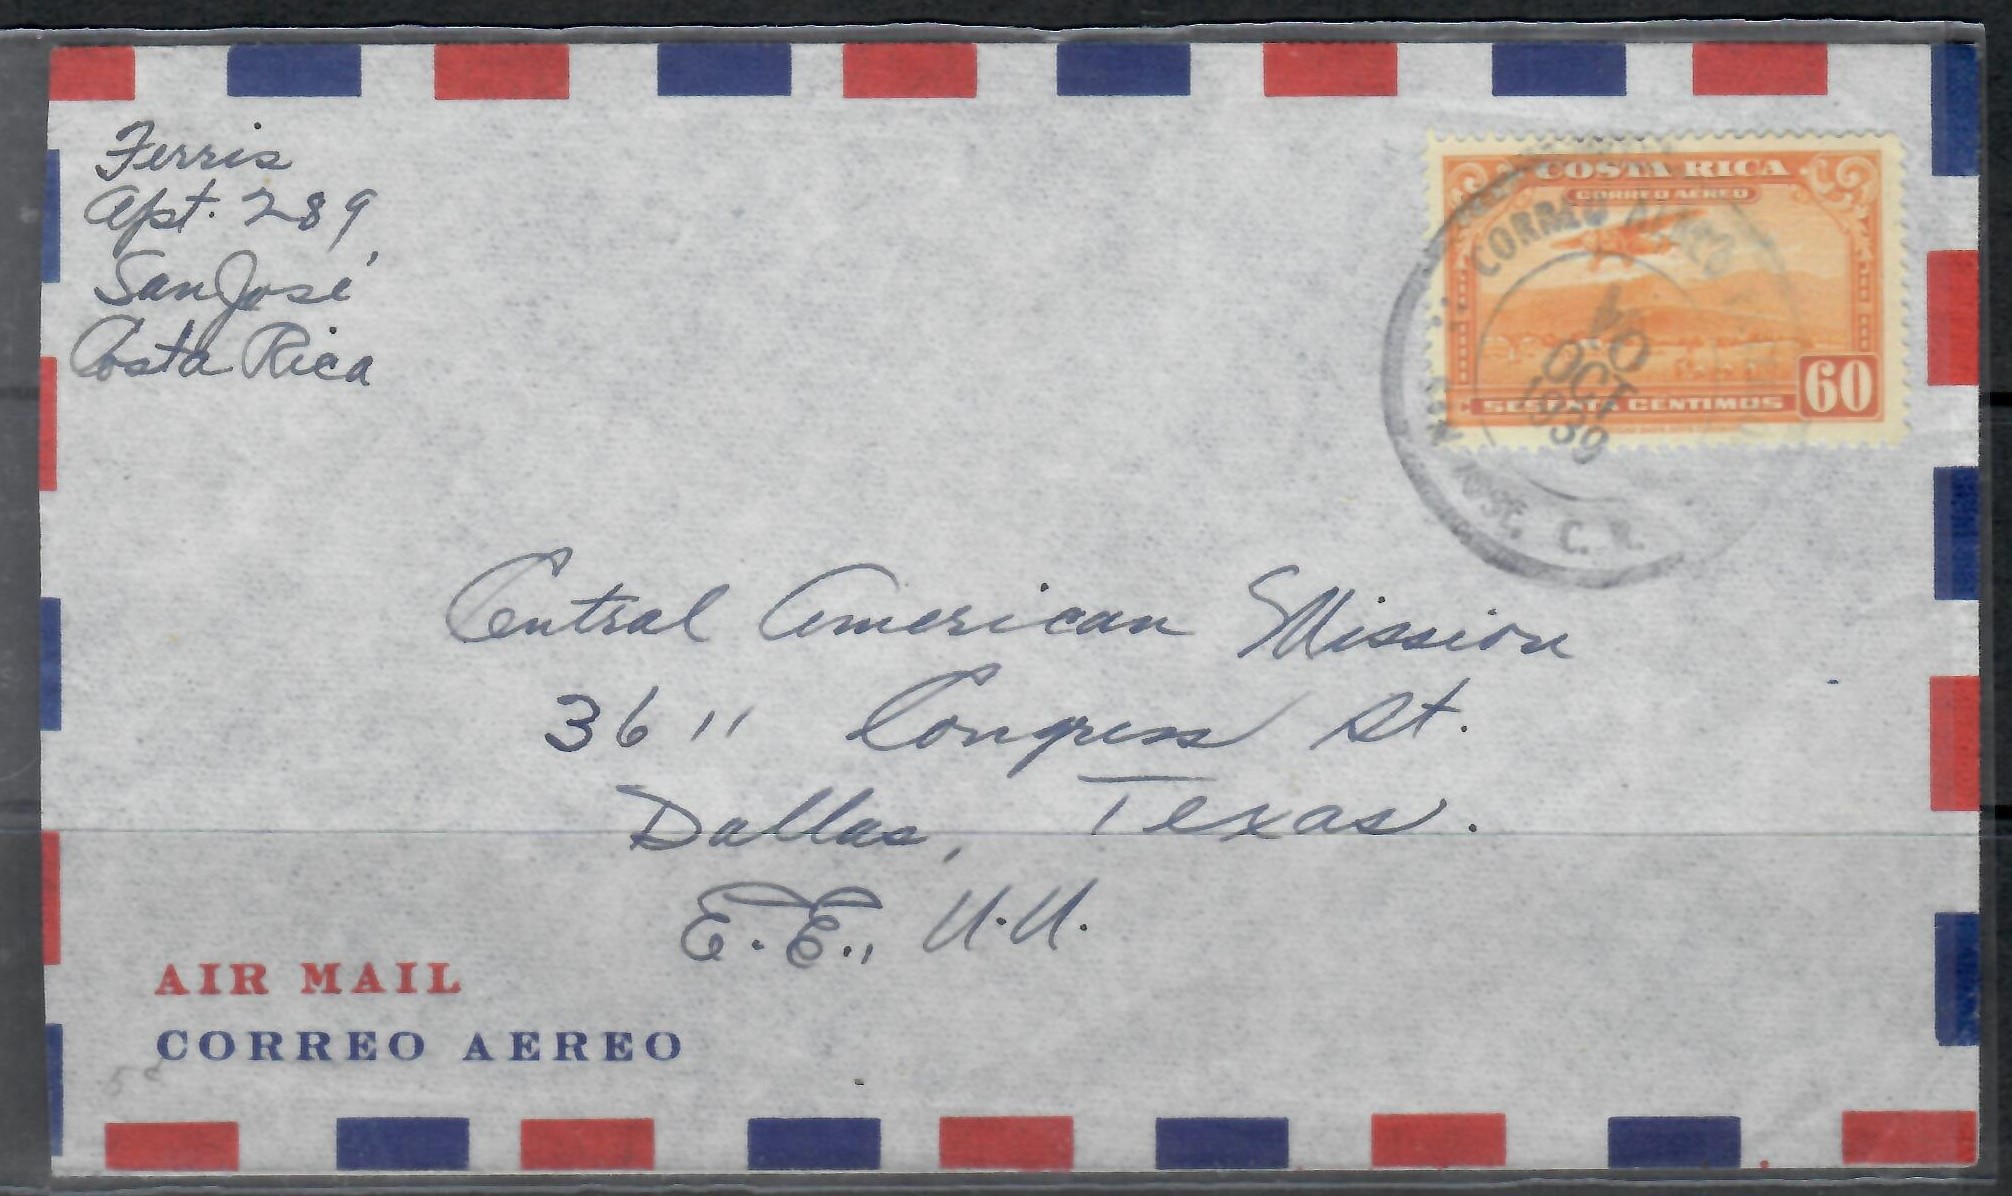 Ferris
Apt. 289,
San José
Costa Rica
COSTA RICA
CORREO AEREO
SESENTA CENTIMOS
60
CORREO AEREO
OCT
1939
SAN JOSE, C. R.
Central American Mission
3611 Congress St.
Dallas, Texas.
E.E., U.U.
AIR MAIL
CORREO AEREO